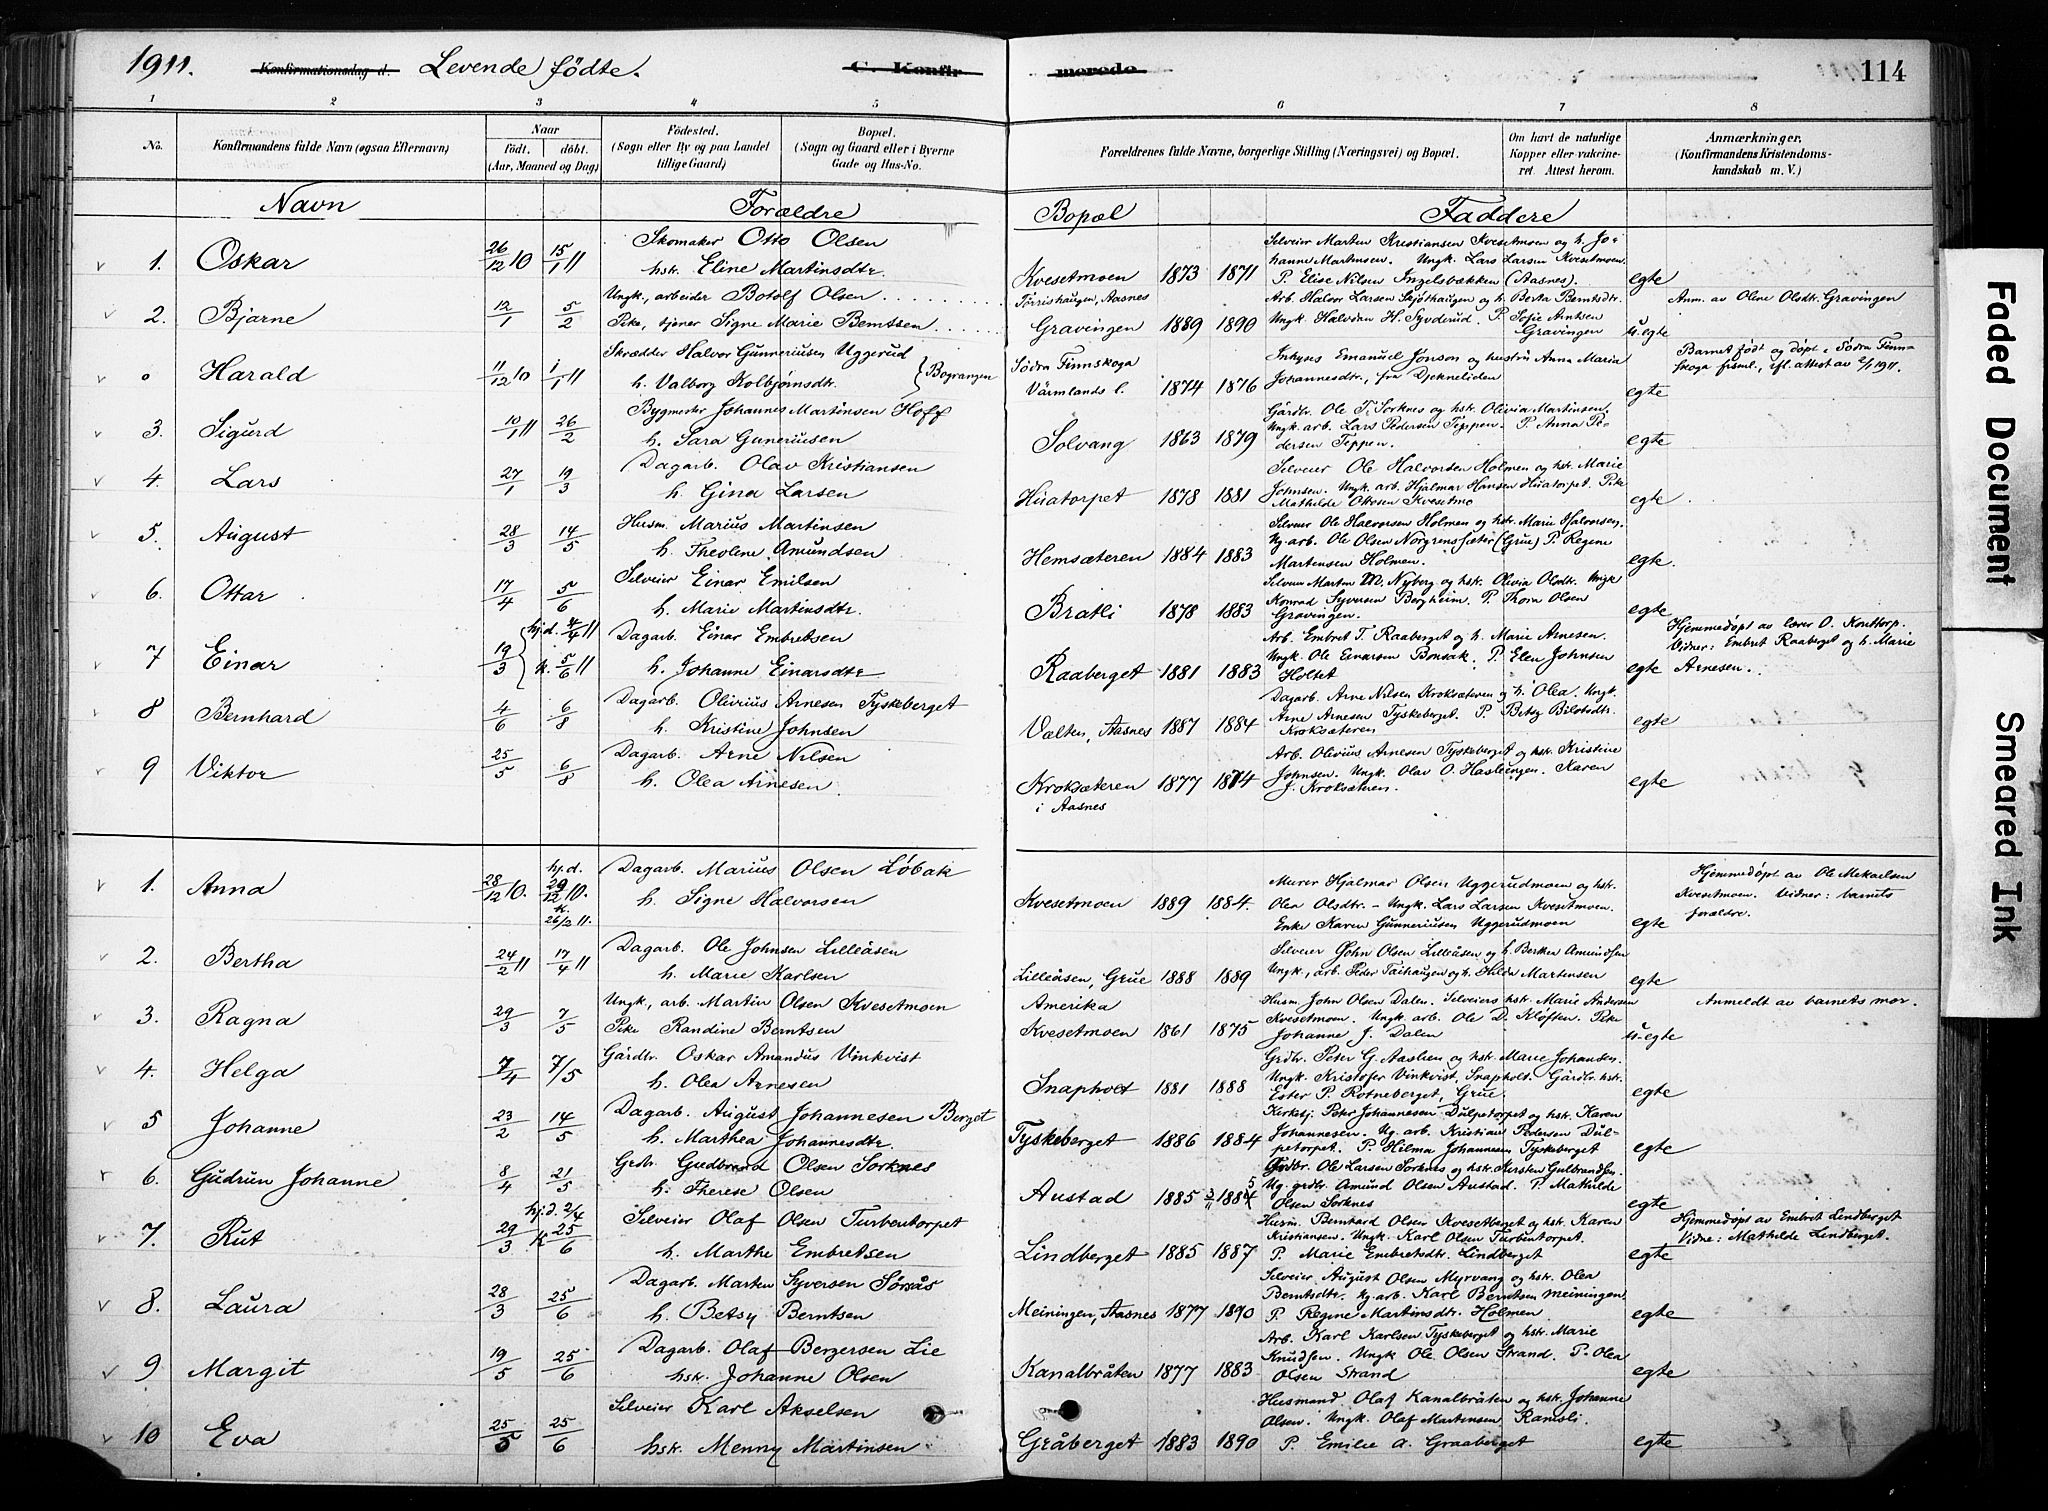 1911. Konfirmationsdag d. Levende fødte. C. Konfirmerede 114
1 2 3 4 5 6 7 8
No. Konfirmandens fulde Navn (ogsaa Efternavn) Naar født. døbt. (Aar, Maaned og Dag) Fødested. (Sogn eller By og paa Landet tillige Gaard) Bopæl. (Sogn og Gaard eller i Byerne Gade og Hus-No. Forældrenes fulde Navne, borgerlige Stilling (Næringsvei) og Bopæl. Om havt de naturlige Kopper eller vakcineret. Attest herom. Anmærkninger, (Konfirmandens Kristendomskundskab m. V.)
Navn Forældre Bopæl Faddere
1. Oskar 26/12 10 15/1 11 Skomaker Otto Olsen
hstr. Eline Martinsdtr. Kvesetmoen 1873 1871 egte
Selveier Marten Kristiansen Kvesetmoen og h. Johanne Martensen. Ungk. Lars Larsen Kvesetmoen.
P. Elise Nilsen Ingelsbækken (Aasnes).
2. Bjarne 12/1 5/2 Ungk., arbeider Botolf Olsen Tørrishaugen, Aasnes
Pike, tjener Signe Marie Berntsen Gravingen 1889 1890 u-egte
Arb. Halvor Larsen Skjøthaugen og h. Berta Berntsdtr.
Ungk. Halvdan H. Syverud. P. Sofie Arntsen Gravingen
Anm. av Oline Olsdtr. Gravingen
Harald 11/12 10 1/1 11 Skrædder Halvor Gunneriusen Uggerud
h. Valborg Kolbjørnsdtr. Bograngen Södra Finnskoga
Värmlands l. 1874 1876 egte
Inhyses Emanuel Jonson og hustru Anna Maria
Johannesdtr., fra Djekneliden
Barnet født og døpt i Södra Finnskoga frsml., ifl. attest av 2/1 1911.
3. Sigurd 10/1 11 26/2 Bygmester Johannes Martinsen Hoff
h. Sara Guneriusen Solvang 1863 1879 egte
Gårdbr. Ole T. Sorknes og hstr. Olivia Martinsen.
Ungk. arb. Lars Pedersen Teppen. P. Anna Pedersen Teppen.
4. Lars 27/1 19/3 Dagarb. Olav Kristiansen
h. Gina Larsen Huatorpet 1878 1881 egte
Selveier Ole Halvorsen Holmen og hstr. Marie
Johnsen. Ungk. arb. Hjalmar Hansen Huatorpet. Pike
Mathilde Ottosen Kvesetmo
5. August 28/3 14/5 Husm. Marius Martinsen
h. Theoline Amundsen Hemsæteren 1884 1883 egte
Selveier Ole Halvorsen Holmen og hstr. Marie Halvorsen.
Ug. arb. Ole Olsen Norgrensæter (Grue) P. Regine
Martensen Holmen.
6. Ottar 17/4 5/6 Selveier Einar Emilsen
h. Marie Martinsdtr. Bratli 1878 1883 egte
Selveier Marten M. Nyberg og hstr. Olivia Olsdtr. Ungk
Konrad Syversen Bergheim. P. Thora Olsen
Gravingen.
7 Einar 19/3 hj.d. 4/4 11 k. 5/6 11 Dagarb. Einar Embretsen
h. Johanne Einarsdtr Raaberget 1881 1883 egte
Arb. Embret T. Raaberget og h. Marie Arnesen.
Ungk. Ole Einarsen Bonsak. P. Elen Johnsen
Holtet
Hjemmedøpt av lærer O. Konttorp.
Vidner: Embret Raaberget og h. Marie
Arnesen.
8 Bernhard 4/6 6/8 Dagarb. Olivius Arnesen Tyskeberget
h. Kristine Johnsen Vælten, Aasnes 1887 1884 egte
Dagarb. Arne Nilsen Kroksæteren og h. Olea. Ungk.
Arne Arnesen Tyskeberget. P. Betsy
Kroksæteren
9 Viktor 25/5 6/8 Dagarb. Arne Nilsen
h. Olea Arnesen Kroksæteren i Aasnes 1877 1874 egte
Arb. Olivius Arnesen Tyskeberget og hstr. Kristine
Johnsen. Ungk. Olav O. Karen
J. Kroksæteren.
1. Anna 28/12 10. hj.d. 29/12 10. k. 26/2 11. Dagarb. Marius Olsen Løbak
h. Signe Halvorsen Kvesetmoen 1889 1884. egte
Murer Hjalmar Olsen Uggerudmoen og hstr.
Olea Olsdtr. - Ungk. Lars Larsen Kvesetmoen.
Enke Karen Gunneriusen Uggerudmoen
Hjemmedøpt av Ole Mekaelsen
Kvesetmoen. Vidner: barnets
forældre.
2. Bertha 24/2 11 17/4 11 Dagarb. Ole Johnsen Lilleåsen
h. Marie Karlsen Lilleåsen, Grue 1888 1889 egte
Selveier John Olsen Lilleåsen og h. Amundsen
Ungk., arb. Peder Taihaugen og h. Hilda Martensen
3. Ragna 29/3 7/5 Ungk., arb. Martin Olsen Kvesetmoen Amerika
Pike Randine Berntsen Kvesetmoen 1861 1875 u-egte
Husm. John Olsen Dalen. Selveiers hstr. Marie Andersen
Kvesetmoen. Ungk. arb. Ole D. Kløften. Pike
Johanne J. Dalen
Anmeldt av barnets mor.
4. Helga 7/4 7/5 Gårdbr. Oskar Amandus Vinkvist
h. Olea Arnesen Snapholt 1881 1888 egte
Grdbr. Peter G. Aaslien og hstr. Marie Johansen.
Ungk. Kristofer Vinkvist, Snapholt. Gårdbr. hstr.
Ester P. Rotneberget, Grue.
5 Johanne 23/2 14/5 Dagarb. August Johannesen Berget
h. Marthea Johannesdtr. Tyskeberget 1886 1884 egte
Kirketj. Peter Johannesen Dulpetorpet og hstr. Karen
Johannesen. Ug. arb. Kristian Pedersen Dulpetorpet. P. Hilma Johannesen Tyskeberget
6. Gudrun Johanne 8/4 21/5 Grdbr. Gudbrand Olsen Sorknes
h. Therese Olsen Austad 1885 1884 5 egte
Grdbr. Ole Larsen Sorknes og hstr. Kirsten Gulbrandsen.
Ug. grdbr. Amund Olsen Austad. P. Mathilde
Olsen Sorknes
7. Rut 29/3 hj.d. 2/4 k 25/6 Selveier Olaf Olsen Turbentorpet
h. Marthe Embretsen Lindberget 1885 1887 egte
Husm. Bernhard Olsen Kvesetberget og hstr. Karen
Kristiansen. Ungk. Karl Olsen Turbentorpet.
P. Marie Embretsdtr. Lindberget
Hjemmedøpt av Embret Lindberget
Vidne: Mathilde Lindberget.
8. Laura 28/3 25/6 Dagarb. Marten Syversen Sørsås
h. Betsy Berntsen Meiningen, Aasnes 1877 1890 egte
Selveier August Olsen Myrvang og hstr. Olea
Berntsdtr. Ug. arb. Karl Berntsen Meiningen
P. Regine Martinsdtr. Holmen
9 Margit 19/5 25/6 Dagarb. Olaf Bergersen Lie
hstr. Johanne Olsen Kanalbråten 1877 1883 egte
Arb. Karl Karlsen Tyskeberget og hstr. Marie
Knudsen. Ungk Ole Olsen Strand. P. Olea
Olsen Strand
10 Eva 25/5 25/6 Selveier Karl Akselsen
hstr. Menny Martinsen Gråberget 1883 1890 egte
Husmand Olaf Kanalbråten og hstr. Johanne
Olsen. Ungk. Olaf Martensen Ramsli.
P. Emilie A. Graaberget
Faded Document
Smeared Ink